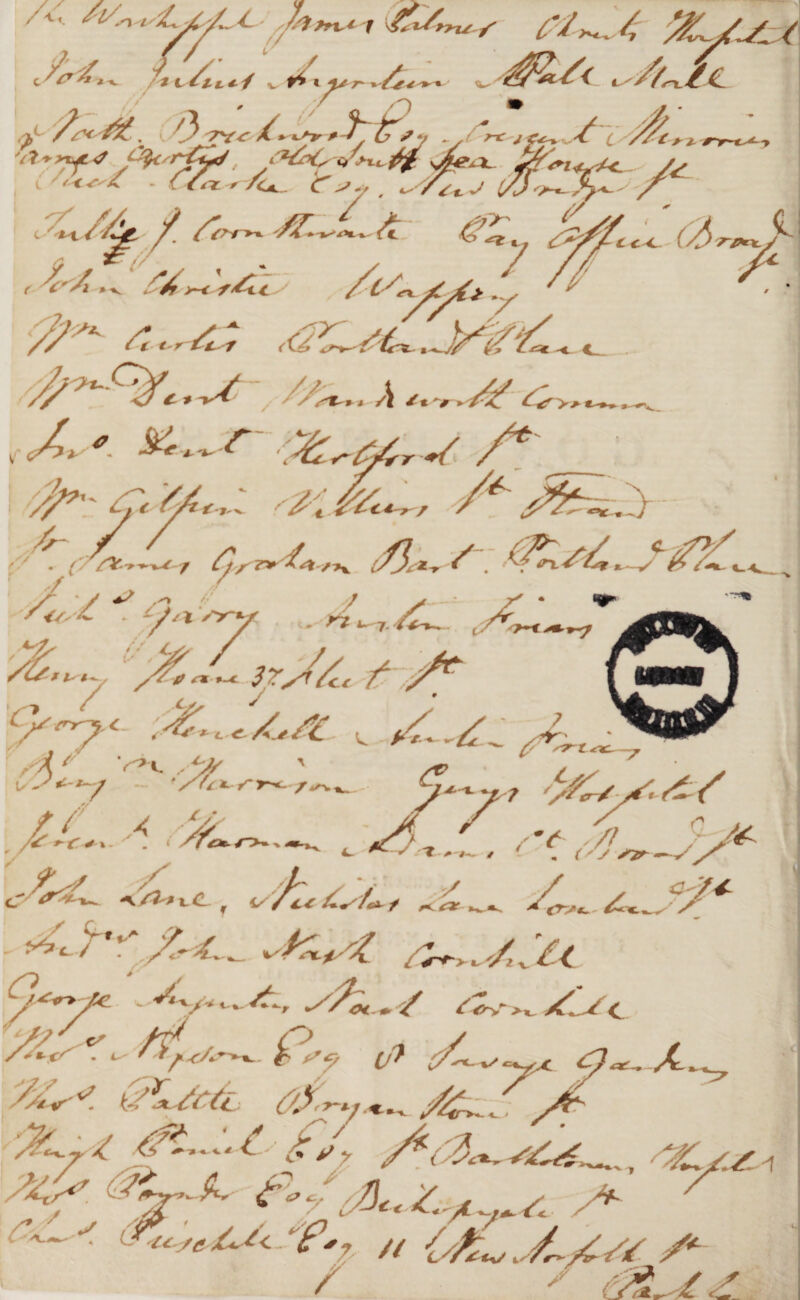 The Worshipful James Palmer Christs Hospital
John Julius Angerstein Pall Mall
Nath. Brickwood Esq. Crescent Minories
James Curtis, Old South Sea House
Rich. Clarke Esq. New Bridge St
Tullie J. Cornthwaite Pay Office Broad
St
John Christie Wapping
Wm Curtis Portland Place
Wm Dent Wandsworth Common
Jno. Dent Hertford St
Wm Gilpin Villiers St Strand
Sr. James Graham Bart. Portland Place
Nichs. Garry Austin Friars
Henry Hoare 37 Fleet St
George Henckell Austin Friars
Benjn Harrison Guys Hospital
Jeremh. Harman Adams Ct. Broad St
John Lane, Nicholas Lane Lombard St.
Andw. John Nash Cornhill
George Augustus Nash Cornhill
Thos. Nixson Esq Savage Gardens
Thos. Pattle Bryanstone St
Hugh Esq St Bartholomews Hospital
Thos. Poynder Esq Bishopsgate St
Chas. Pieschell Esq 11 New Norfolk St
Park